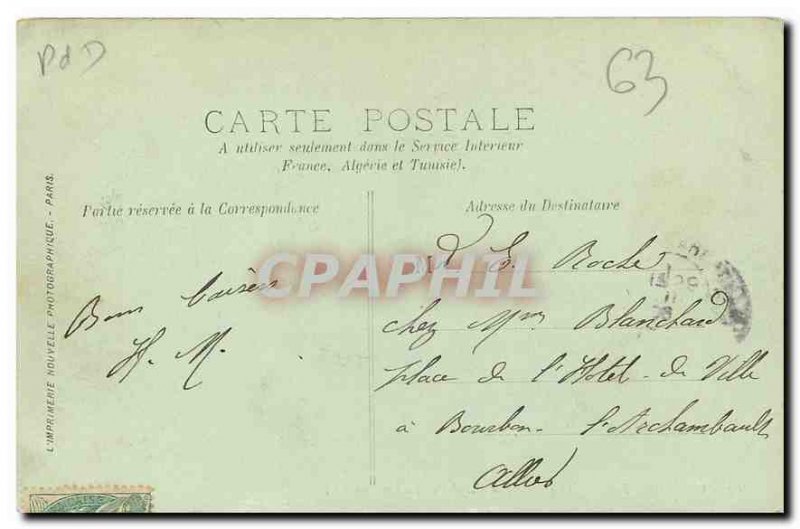 PdD
63
CARTE POSTALE
A utiliser seulement dans le Service Intérieur
(France, Algérie et Tunisie).
Partie réservée à la Correspondance
Adresse du Destinataire
L'IMPRIMERIE NOUVELLE PHOTOGRAPHIQUE. - PARIS.
CPAPHIL
Bons baisers
H. M.
E. Roche
chez Mme Blanchard
place de l'Hôtel-de-Ville
à Bourbon-l'Archambault
Allier